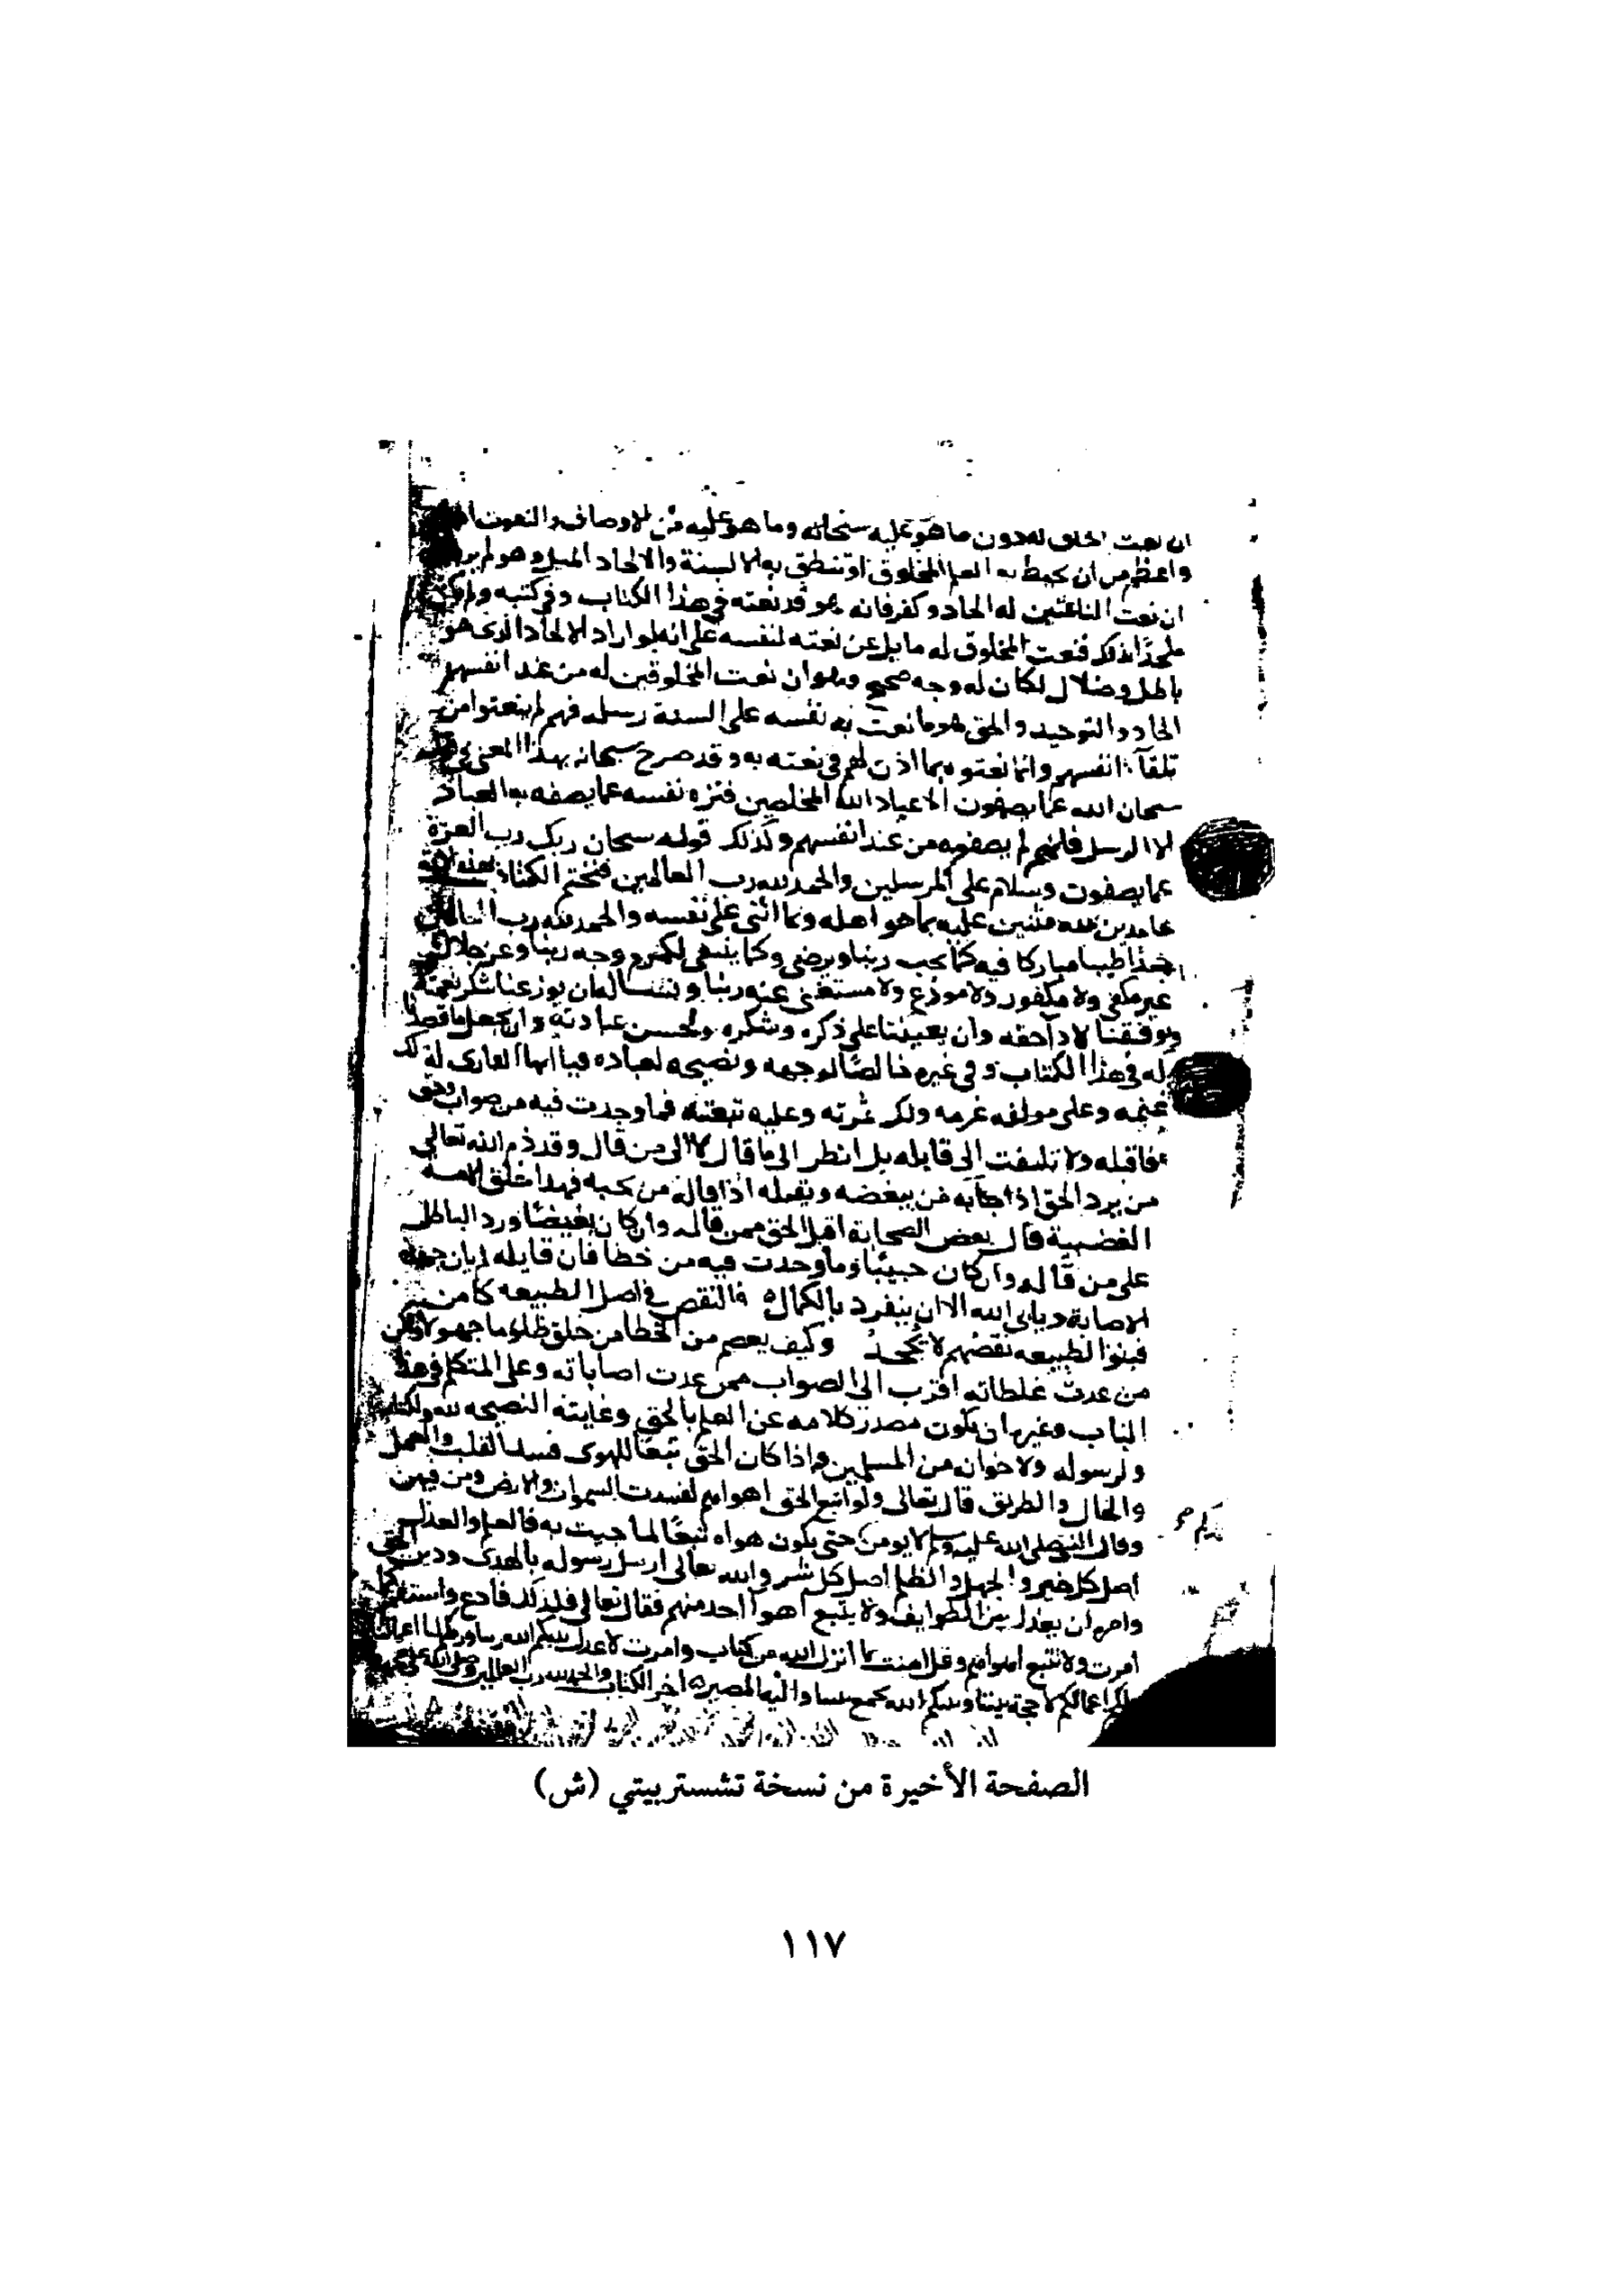 ان نعت الخلق له دون ما هو عليه سبحانه وما هو عليه من الاوصاف والنعوت
واعظم من ان يحيط به العلم المخلوق او تنطق به الالسنة والالحاد الميل وهو لم يرد
ان نعت الناعتين له الحاد وكفر فانه هو قد نعته في هذا الكتاب وفي كتبه ولم يكن
ملحدا بذلك فنعت المخلوق له مايل عن نعته لنفسه على انه لو اراد الالحاد الذي هو
باطل وضلال لكان له وجه صحيح وهو ان نعت المخلوقين له من عند انفسهم
الحاد والتوحيد والحق هو ما نعت به نفسه على السنة رسله فهم لم ينعتوه من
تلقآء انفسهم وانما نعتوه بما اذن لهم في نعته به وقد صرح سبحانه بهذا المعنى في
سبحان الله عما يصفون الا عباد الله المخلصين فنزه نفسه عما يصفه به العباد
الا الرسل فانهم لم يصفوه من عند انفسهم وكذلك قوله سبحان ربك رب العزة
عما يصفون وسلام على المرسلين والحمد لله رب العالمين فنختم الكتاب بهذه الاية
حامدين لله مثنين عليه بما هو اهله وبما اثنى على نفسه والحمد لله رب العالمين
حمدا طيبا مباركا فيه كما يحب ربنا ويرضى وكما ينبغي لكرم وجه ربنا وعز جلاله
غير مكفي ولا مكفور ولا مودع ولا مستغنى عنه ربنا ونساله ان يوزعنا شكر نعمته
ويوفقنا لادآ حقه وان يعيننا على ذكره وشكره وحسن عبادته وان يجعل ما قصدنا
له في هذا الكتاب وفي غيره خالصا لوجهه ونصيحه لعباده فيا ايها القارى له لك
غنمه وعلى مولفه غرمه ولك ثمرته وعليه تبعته فما وجدت فيه من صواب وحق
فاقبله ولا تلتفت الى قايله بل انظر الى ما قال لا الى من قال وقد ذم الله تعالى
من يرد الحق اذا جآء به من يبغضه ويقبله اذا قاله من يحبه فهذا خلق الامة
الغضبية قال بعض الصحابة اقبل الحق ممن قاله وان كان بغيضا ورد الباطل
على من قاله وان كان حبيبا وما وجدت فيه من خطا فان قايله لم يال جهد
الاصابة ويابى الله الا ان ينفرد بالكمال فالنقص في اصل الطبيعه كامن
فبنو الطبيعه نقصهم لا يجحد وكيف يعصم من الخطا من خلق ظلوما جهولا ولكن
من عدت غلطاته اقرب الى الصواب ممن عدت اصاباته وعلى المتكلم في هذا
الباب وغيره ان يكون مصدر كلامه عن العلم بالحق وغايته النصيحه لله ولكتابه
ولرسوله ولاخوانه من المسلمين واذا كان الحق تبعا للهوى فسد القلب والعمل
والحال والطريق قال تعالى ولو اتبع الحق اهواهم لفسدت السموات والارض ومن فيهن
وقال النبي صلى الله عليه وسلم لا يومن حتى يكون هواه تبعا لما جيت به فالعلم والعدل
اصل كل خير والجهل والظلم اصل كل شر والله تعالى ارسل رسوله بالهدى ودين الحق
وامره ان يعدل بين الطوايف ولا يتبع اهوآ احد منهم فقال تعالى فلذلك فادع واستقم كما
امرت ولا تتبع اهواهم وقل امنت بما انزل الله من كتاب وامرت لاعدل بينكم الله ربنا وربكم لنا اعمالنا
ولكم اعمالكم لا حجة بيننا وبينكم الله يجمع بيننا واليه المصير اخر الكتاب والحمد لله رب العالمين وصلى الله على
الصفحة الأخيرة من نسخة تشستربيتي (ش)
١١٧